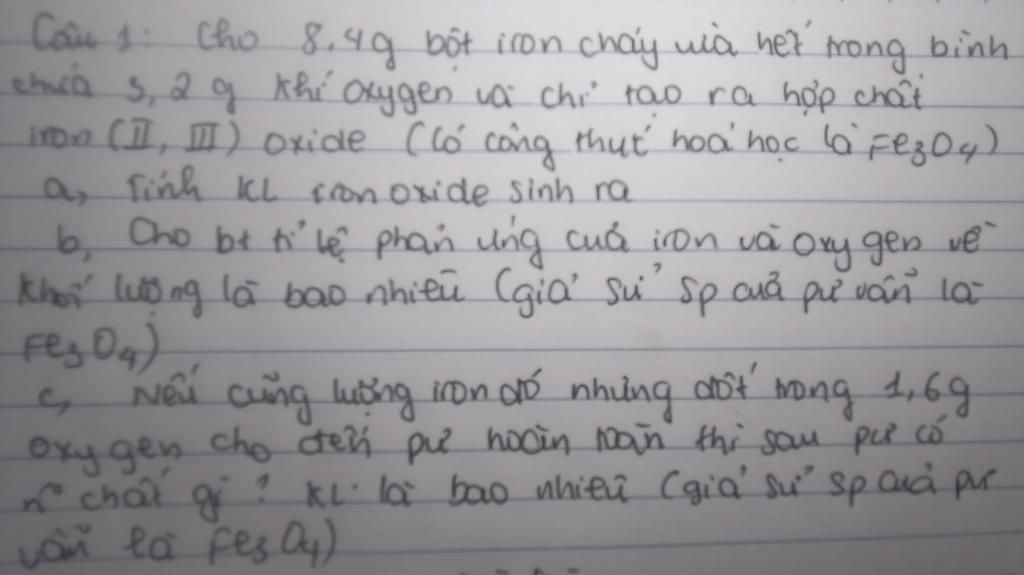 Câu 1: Cho 8,4g bột iron cháy vừa hết trong bình
chứa 3,2 g khí oxygen và chỉ tạo ra hợp chất
iron (II, III) oxide (Có công thức hoá học là Fe3O4)
a, Tính KL iron oxide sinh ra
b, Cho bt tỉ lệ phản ứng của iron và oxygen về
khối lượng là bao nhiêu (giả sử sp của pư vẫn là
Fe3O4)
c, Nếu cũng lượng iron đó nhưng đốt trong 1,6g
oxygen cho đến pư hoàn toàn thì sau pư có
chất gì? KL là bao nhiêu (giả sử sp của pư
vẫn là Fe3O4)